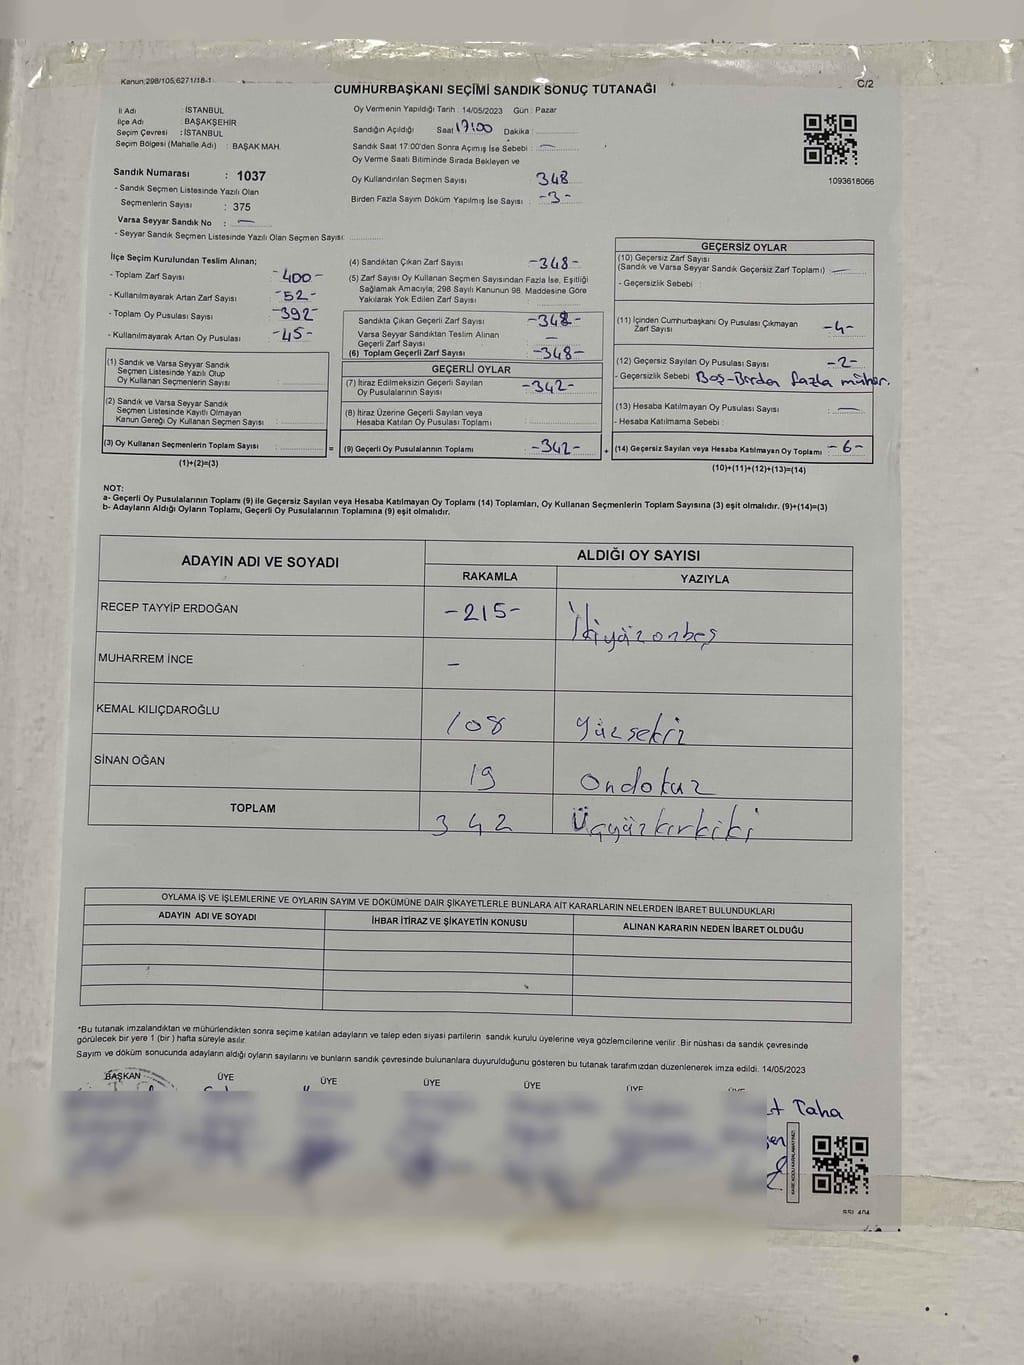 Kanun:298/105,6271/18-1
C/2
CUMHURBAŞKANI SEÇİMİ SANDIK SONUÇ TUTANAĞI
İl Adı : İSTANBUL
İlçe Adı : BAŞAKŞEHİR
Seçim Çevresi : İSTANBUL
Seçim Bölgesi (Mahalle Adı) : BAŞAK MAH.
Sandık Numarası : 1037
- Sandık Seçmen Listesinde Yazılı Olan
Seçmenlerin Sayısı : 375
Varsa Seyyar Sandık No : —
- Seyyar Sandık Seçmen Listesinde Yazılı Olan Seçmen Sayısı:
Oy Vermenin Yapıldığı Tarih : 14/05/2023 Gün : Pazar
Sandığın Açıldığı Saat 17:00 Dakika :
Sandık Saat 17:00'den Sonra Açımış İse Sebebi : —
Oy Verme Saati Bitiminde Sırada Bekleyen ve
Oy Kullandırılan Seçmen Sayısı 348
Birden Fazla Sayım Döküm Yapılmış İse Sayısı : -3-
1093618066
İlçe Seçim Kurulundan Teslim Alınan;
- Toplam Zarf Sayısı -400-
- Kullanılmayarak Artan Zarf Sayısı -52-
- Toplam Oy Pusulası Sayısı -392-
- Kullanılmayarak Artan Oy Pusulası -45-
(1) Sandık ve Varsa Seyyar Sandık
Seçmen Listesinde Yazılı Olup
Oy Kullanan Seçmenlerin Sayısı :
(2) Sandık ve Varsa Seyyar Sandık
Seçmen Listesinde Kayıtlı Olmayan
Kanun Gereği Oy Kullanan Seçmen Sayısı :
(3) Oy Kullanan Seçmenlerin Toplam Sayısı :
(1)+(2)=(3)
(4) Sandıktan Çıkan Zarf Sayısı -348-
(5) Zarf Sayısı Oy Kullanan Seçmen Sayısından Fazla İse, Eşitliği
Sağlamak Amacıyla; 298 Sayılı Kanunun 98. Maddesine Göre
Yakılarak Yok Edilen Zarf Sayısı :
Sandıkta Çıkan Geçerli Zarf Sayısı -348-
Varsa Seyyar Sandıktan Teslim Alınan
Geçerli Zarf Sayısı —
(6) Toplam Geçerli Zarf Sayısı -348-
GEÇERLİ OYLAR
(7) İtiraz Edilmeksizin Geçerli Sayılan
Oy Pusulasının Sayısı -342-
(8) İtiraz Üzerine Geçerli Sayılan veya
Hesaba Katılan Oy Pusulası Toplamı
= (9) Geçerli Oy Pusulalarının Toplamı -342-
GEÇERSİZ OYLAR
(10) Geçersiz Zarf Sayısı
(Sandık ve Varsa Seyyar Sandık Geçersiz Zarf Toplamı) : —
- Geçersizlik Sebebi :
(11) İçinden Cumhurbaşkanı Oy Pusulası Çıkmayan
Zarf Sayısı -4-
(12) Geçersiz Sayılan Oy Pusulası Sayısı -2-
- Geçersizlik Sebebi Boş-Birden fazla mühür.
(13) Hesaba Katılmayan Oy Pusulası Sayısı : —
- Hesaba Katılmama Sebebi :
+ (14) Geçersiz Sayılan veya Hesaba Katılmayan Oy Toplamı -6-
(10)+(11)+(12)+(13)=(14)
NOT:
a- Geçerli Oy Pusulalarının Toplamı (9) ile Geçersiz Sayılan veya Hesaba Katılmayan Oy Toplamı (14) Toplamları, Oy Kullanan Seçmenlerin Toplam Sayısına (3) eşit olmalıdır. (9)+(14)=(3)
b- Adayların Aldığı Oyların Toplamı, Geçerli Oy Pusulalarının Toplamına (9) eşit olmalıdır.
ADAYIN ADI VE SOYADI
ALDIĞI OY SAYISI
RAKAMLA YAZIYLA
RECEP TAYYİP ERDOĞAN -215- İkiyüzonbeş
MUHARREM İNCE –
KEMAL KILIÇDAROĞLU 108 Yüzsekiz
SİNAN OĞAN 19 Ondokuz
TOPLAM 342 Üçyüzkırkiki
OYLAMA İŞ VE İŞLEMLERİNE VE OYLARIN SAYIM VE DÖKÜMÜNE DAİR ŞİKAYETLERLE BUNLARA AİT KARARLARIN NELERDEN İBARET BULUNDUKLARI
ADAYIN ADI VE SOYADI İHBAR İTİRAZ VE ŞİKAYETİN KONUSU ALINAN KARARIN NEDEN İBARET OLDUĞU
*Bu tutanak imzalandıktan ve mühürlendikten sonra seçime katılan adayların ve talep eden siyasi partilerin sandık kurulu üyelerine veya gözlemcilerine verilir .Bir nüshası da sandık çevresinde
görülecek bir yere 1 (bir ) hafta süreyle asılır.
Sayım ve döküm sonucunda adayların aldığı oyların sayılarını ve bunların sandık çevresinde bulunanlara duyurulduğunu gösteren bu tutanak tarafımızdan düzenlenerek imza edildi. 14/05/2023
BAŞKAN ÜYE ÜYE ÜYE ÜYE ÜYE ÜYE
Taha